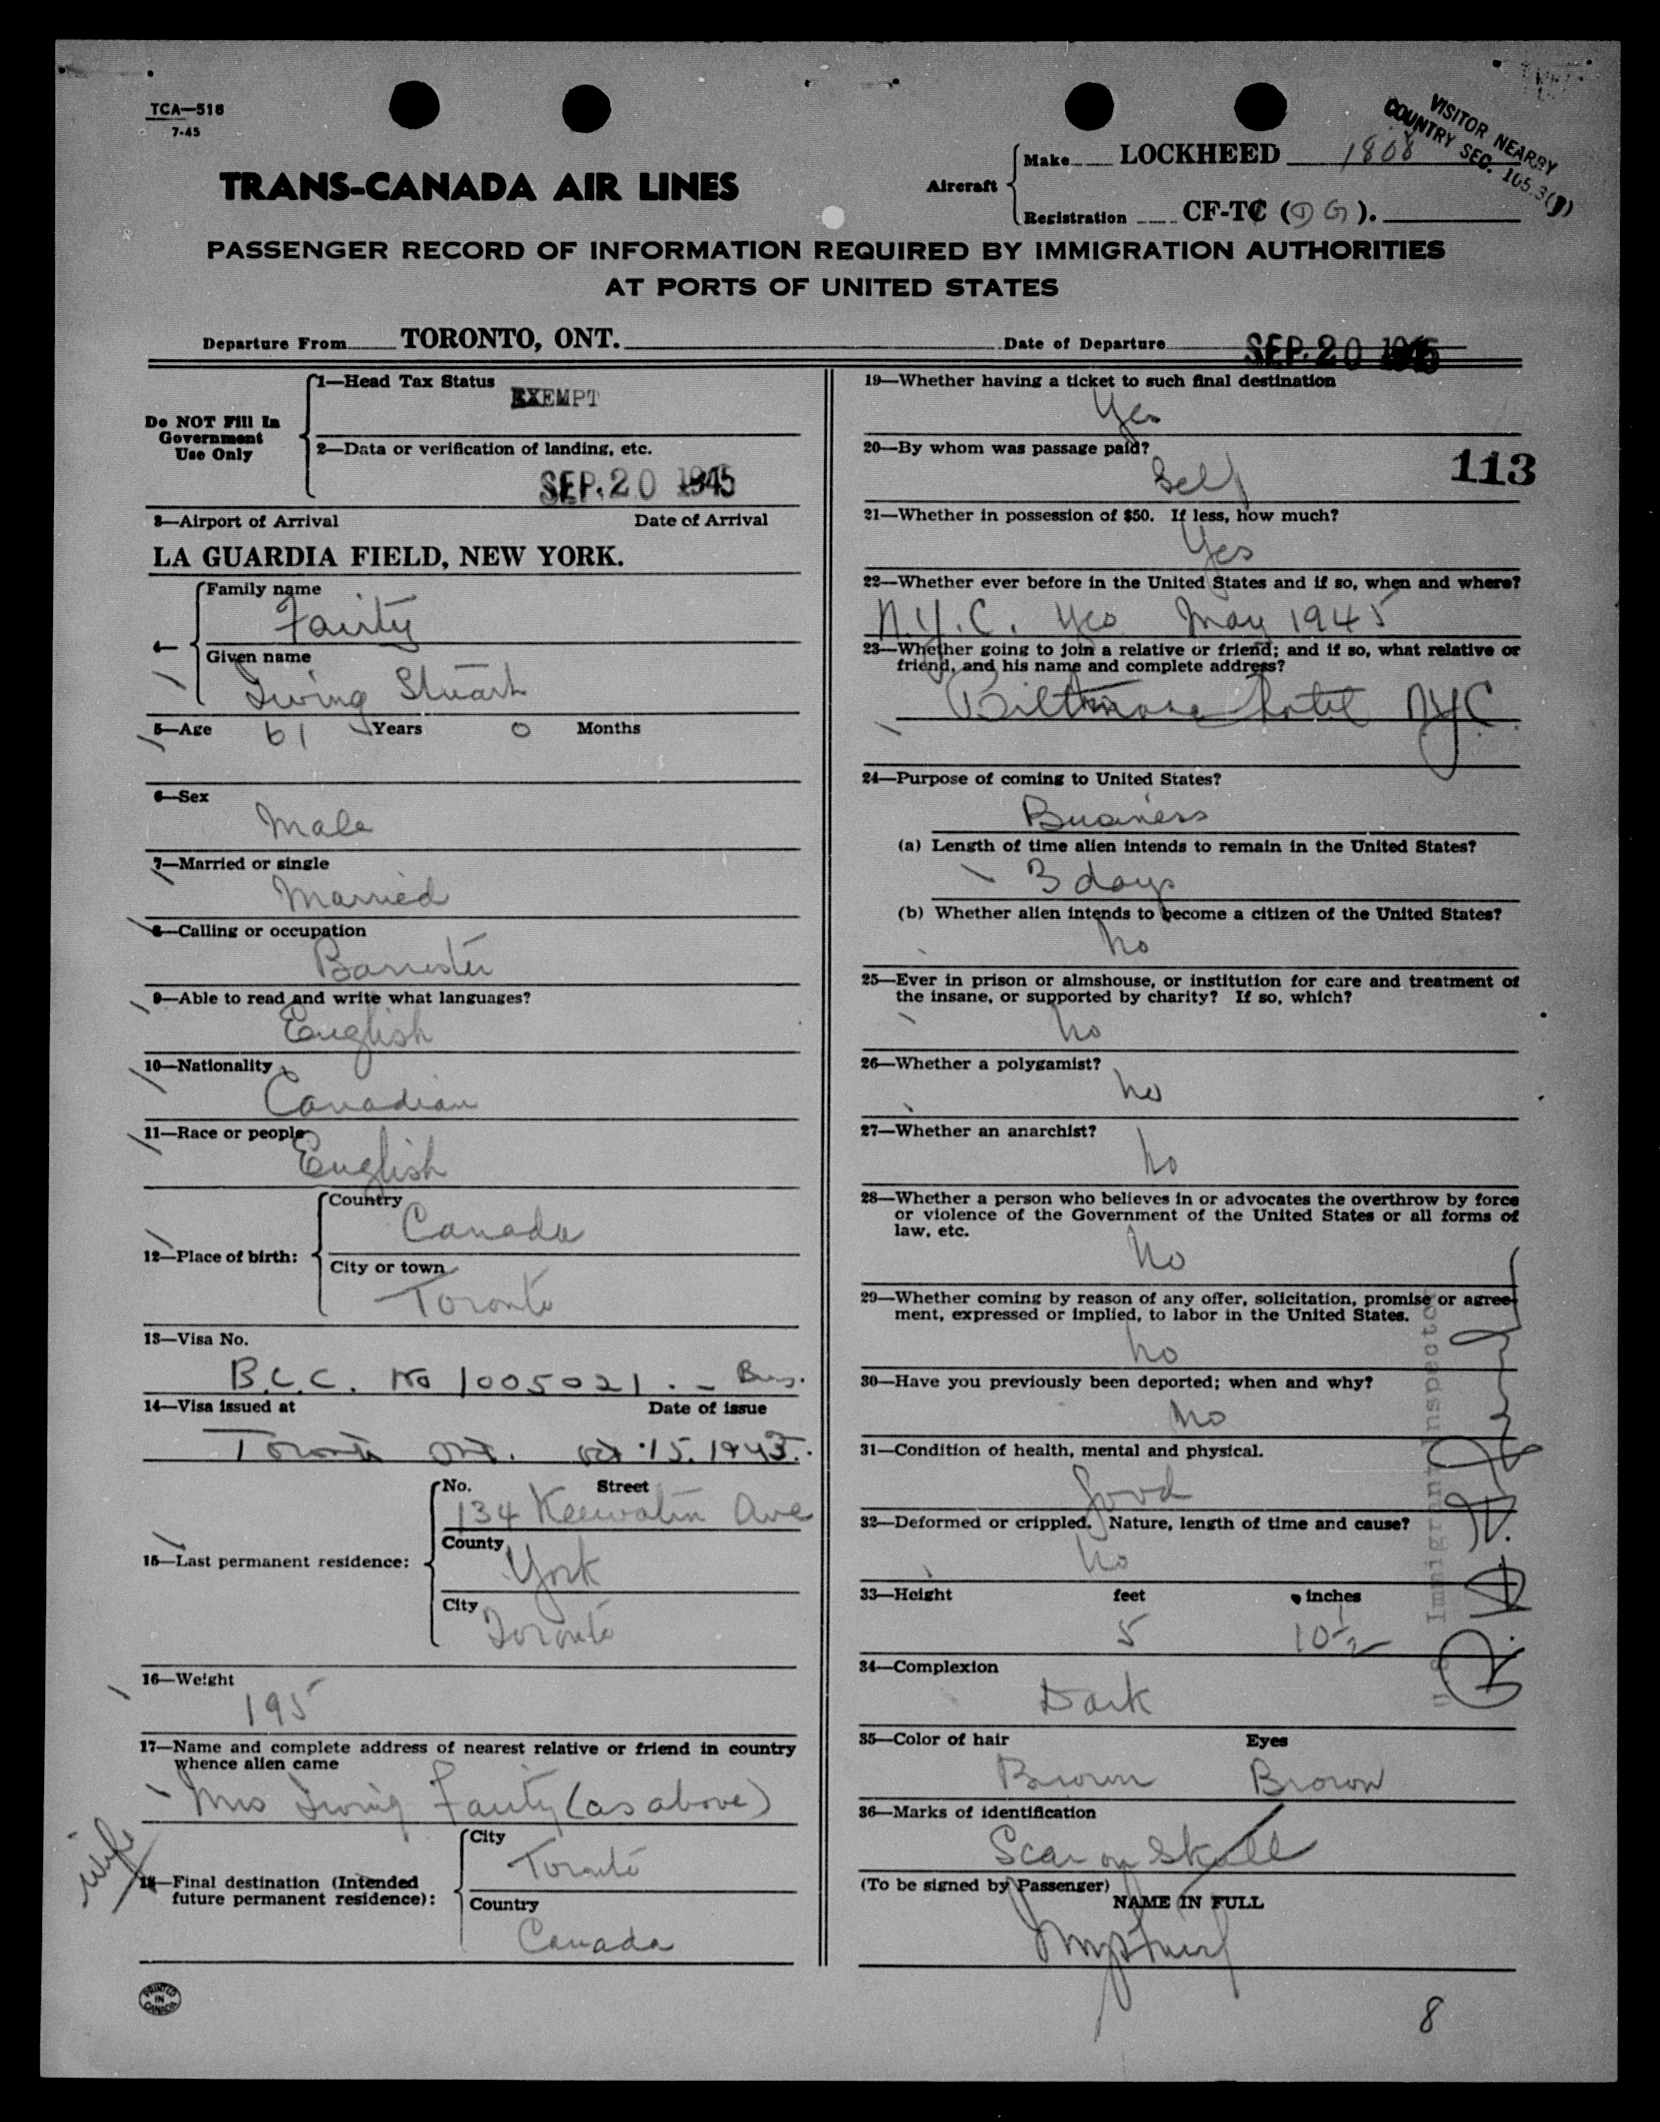 TCA—518
7-45
VISITOR NEARBY
COUNTRY SEC. 165.3(f)
TRANS-CANADA AIR LINES
Aircraft
Make LOCKHEED 1808
Registration CF-TC (D G).
PASSENGER RECORD OF INFORMATION REQUIRED BY IMMIGRATION AUTHORITIES
AT PORTS OF UNITED STATES
Departure From TORONTO, ONT. Date of Departure SEP. 20 1945
Do NOT Fill In
Government
Use Only
1—Head Tax Status
EXEMPT
2—Data or verification of landing, etc.
SEP. 20 1945
3—Airport of Arrival Date of Arrival
LA GUARDIA FIELD, NEW YORK.
4—
Family name
Fairty
Given name
Irving Stuart
5—Age 61 Years 0 Months
6—Sex
Male
7—Married or single
Married
8—Calling or occupation
Barrister
9—Able to read and write what languages?
English
10—Nationality
Canadian
11—Race or people
English
12—Place of birth:
Country
Canada
City or town
Toronto
13—Visa No.
B.C.C. No 1005021. – Bus.
14—Visa issued at Date of issue
Toronto Ont. Oct. 15. 1943.
15—Last permanent residence:
No. Street
134 Keewatin Ave
County
York
City
Toronto
16—Weight
195
17—Name and complete address of nearest relative or friend in country
whence alien came
Mrs Irving Fairty (as above)
wife
18—Final destination (Intended
future permanent residence):
City
Toronto
Country
Canada
PRINTED
IN
CANADA
19—Whether having a ticket to such final destination
Yes
20—By whom was passage paid?
Self
113
21—Whether in possession of $50. If less, how much?
Yes
22—Whether ever before in the United States and if so, when and where?
N.Y.C. Yes May 1945
23—Whether going to join a relative or friend; and if so, what relative or
friend, and his name and complete address?
Biltmore Hotel NYC
24—Purpose of coming to United States?
Business
(a) Length of time alien intends to remain in the United States?
3 days
(b) Whether alien intends to become a citizen of the United States?
No
25—Ever in prison or almshouse, or institution for care and treatment of
the insane, or supported by charity? If so, which?
No
26—Whether a polygamist?
No
27—Whether an anarchist?
No
28—Whether a person who believes in or advocates the overthrow by force
or violence of the Government of the United States or all forms of
law, etc.
No
29—Whether coming by reason of any offer, solicitation, promise or agree-
ment, expressed or implied, to labor in the United States.
No
30—Have you previously been deported; when and why?
No
31—Condition of health, mental and physical.
Good
32—Deformed or crippled. Nature, length of time and cause?
No
33—Height feet inches
5 10½
34—Complexion
Dark
35—Color of hair Eyes
Brown Brown
36—Marks of identification
Scar on Skull
(To be signed by Passenger)
NAME IN FULL
U.S. Immigrant Inspector
8